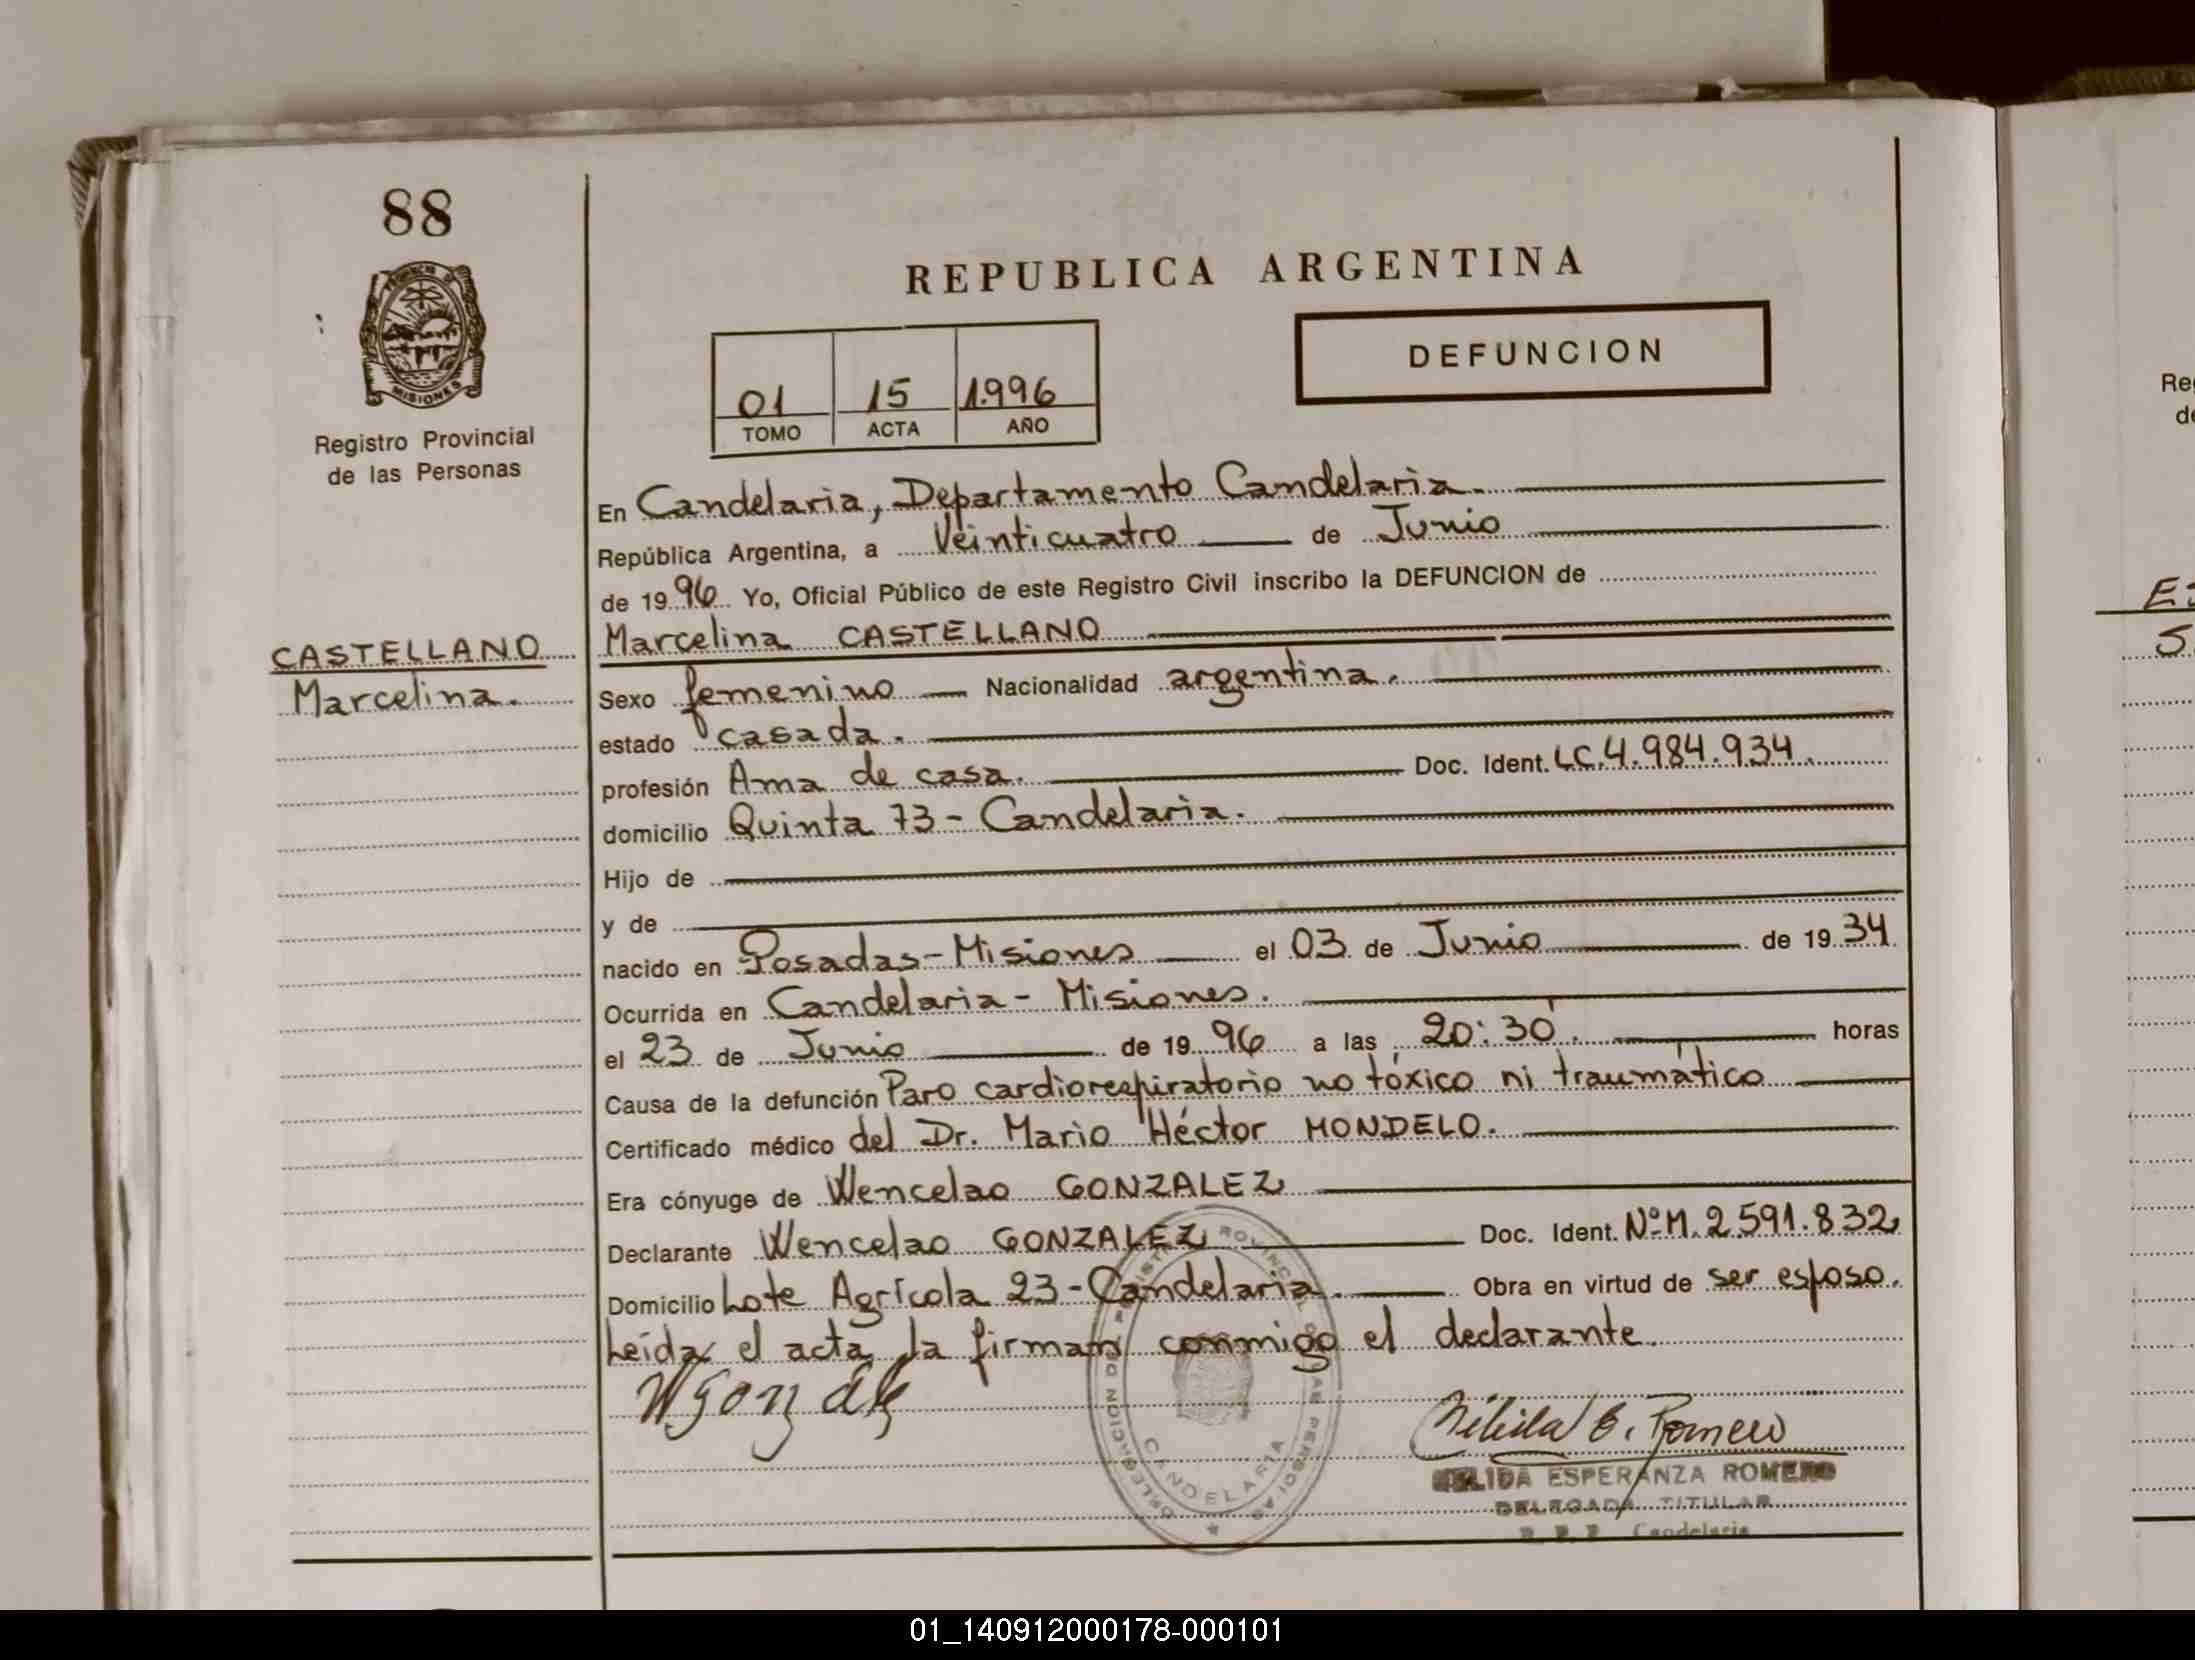 88
PROVINCIA DE
MISIONES
Registro Provincial
de las Personas
CASTELLANO
Marcelina.
REPUBLICA ARGENTINA
DEFUNCION
01 15 1.996
TOMO ACTA AÑO
En Candelaria, Departamento Candelaria.
República Argentina, a Veinticuatro de Junio
de 19 96 Yo, Oficial Público de este Registro Civil inscribo la DEFUNCION de
Marcelina CASTELLANO
Sexo femenino Nacionalidad argentina.
estado casada.
profesión Ama de casa. Doc. Ident. LC.4.984.934.
domicilio Quinta 73 - Candelaria.
Hijo de
y de
nacido en Posadas - Misiones el 03 de Junio de 19 34
Ocurrida en Candelaria - Misiones.
el 23 de Junio de 19 96 a las 20:30'. horas
Causa de la defunción Paro cardiorespiratorio no tóxico ni traumático
Certificado médico del Dr. Mario Héctor MONDELO.
Era cónyuge de Wencelao GONZALEZ
Declarante Wencelao GONZALEZ Doc. Ident. Nº M. 2.591.832
Domicilio Lote Agrícola 23 - Candelaria. Obra en virtud de ser esposo.
Leída el acta la firman conmigo el declarante.
WGonzalez
Nélida E. Romero
NELIDA ESPERANZA ROMERO
DELEGADA TITULAR
R. P. P. Candelaria
CANDELARIA
Reg
de
S
01_140912000178-000101